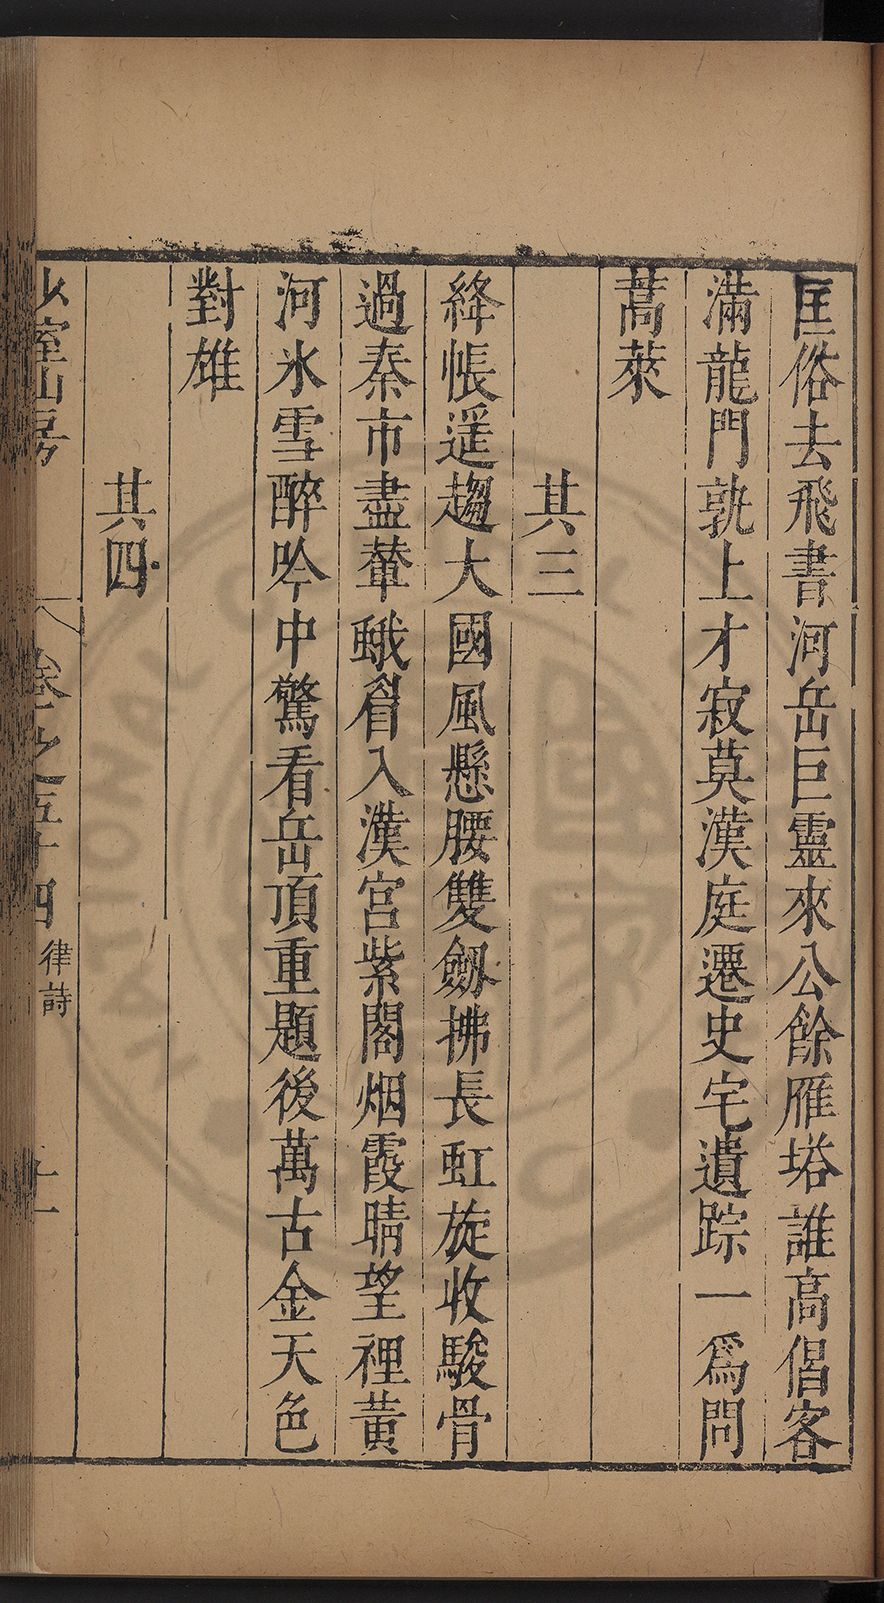 匡俗去飛書河岳巨靈來公餘雁塔誰高倡客
滿龍門孰上才寂莫漢庭遷史宅遺踪一爲問
蒿萊
其三
絳帳遥趨大國風懸腰雙劔拂長虹旋收駿骨
過秦市盡輦蛾眉入漢宮紫閣烟霞晴望裡黃
河氷雪醉吟中驚看岳頂重題後萬古金天色
對雄
其四
少室山房
卷之五十四
律詩
十一